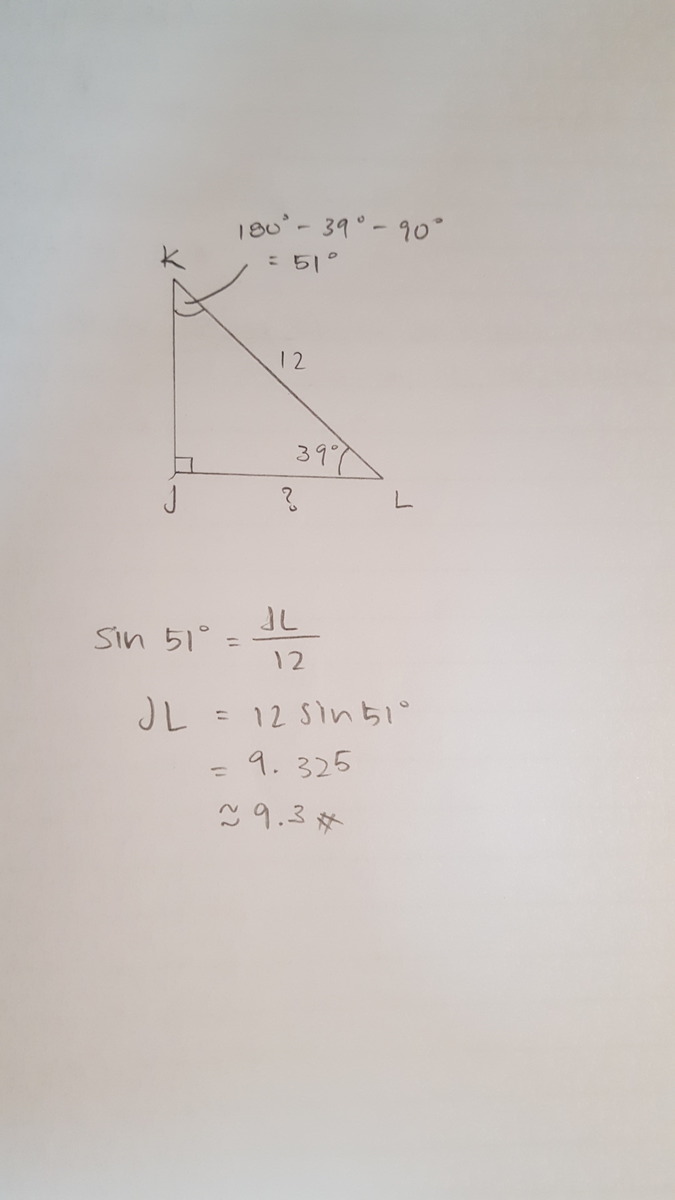 180° - 39° - 90°
K
= 51°
12
39°
J
?
L
sin 51° = JL/12
JL = 12 sin 51°
= 9.325
≈ 9.3 #